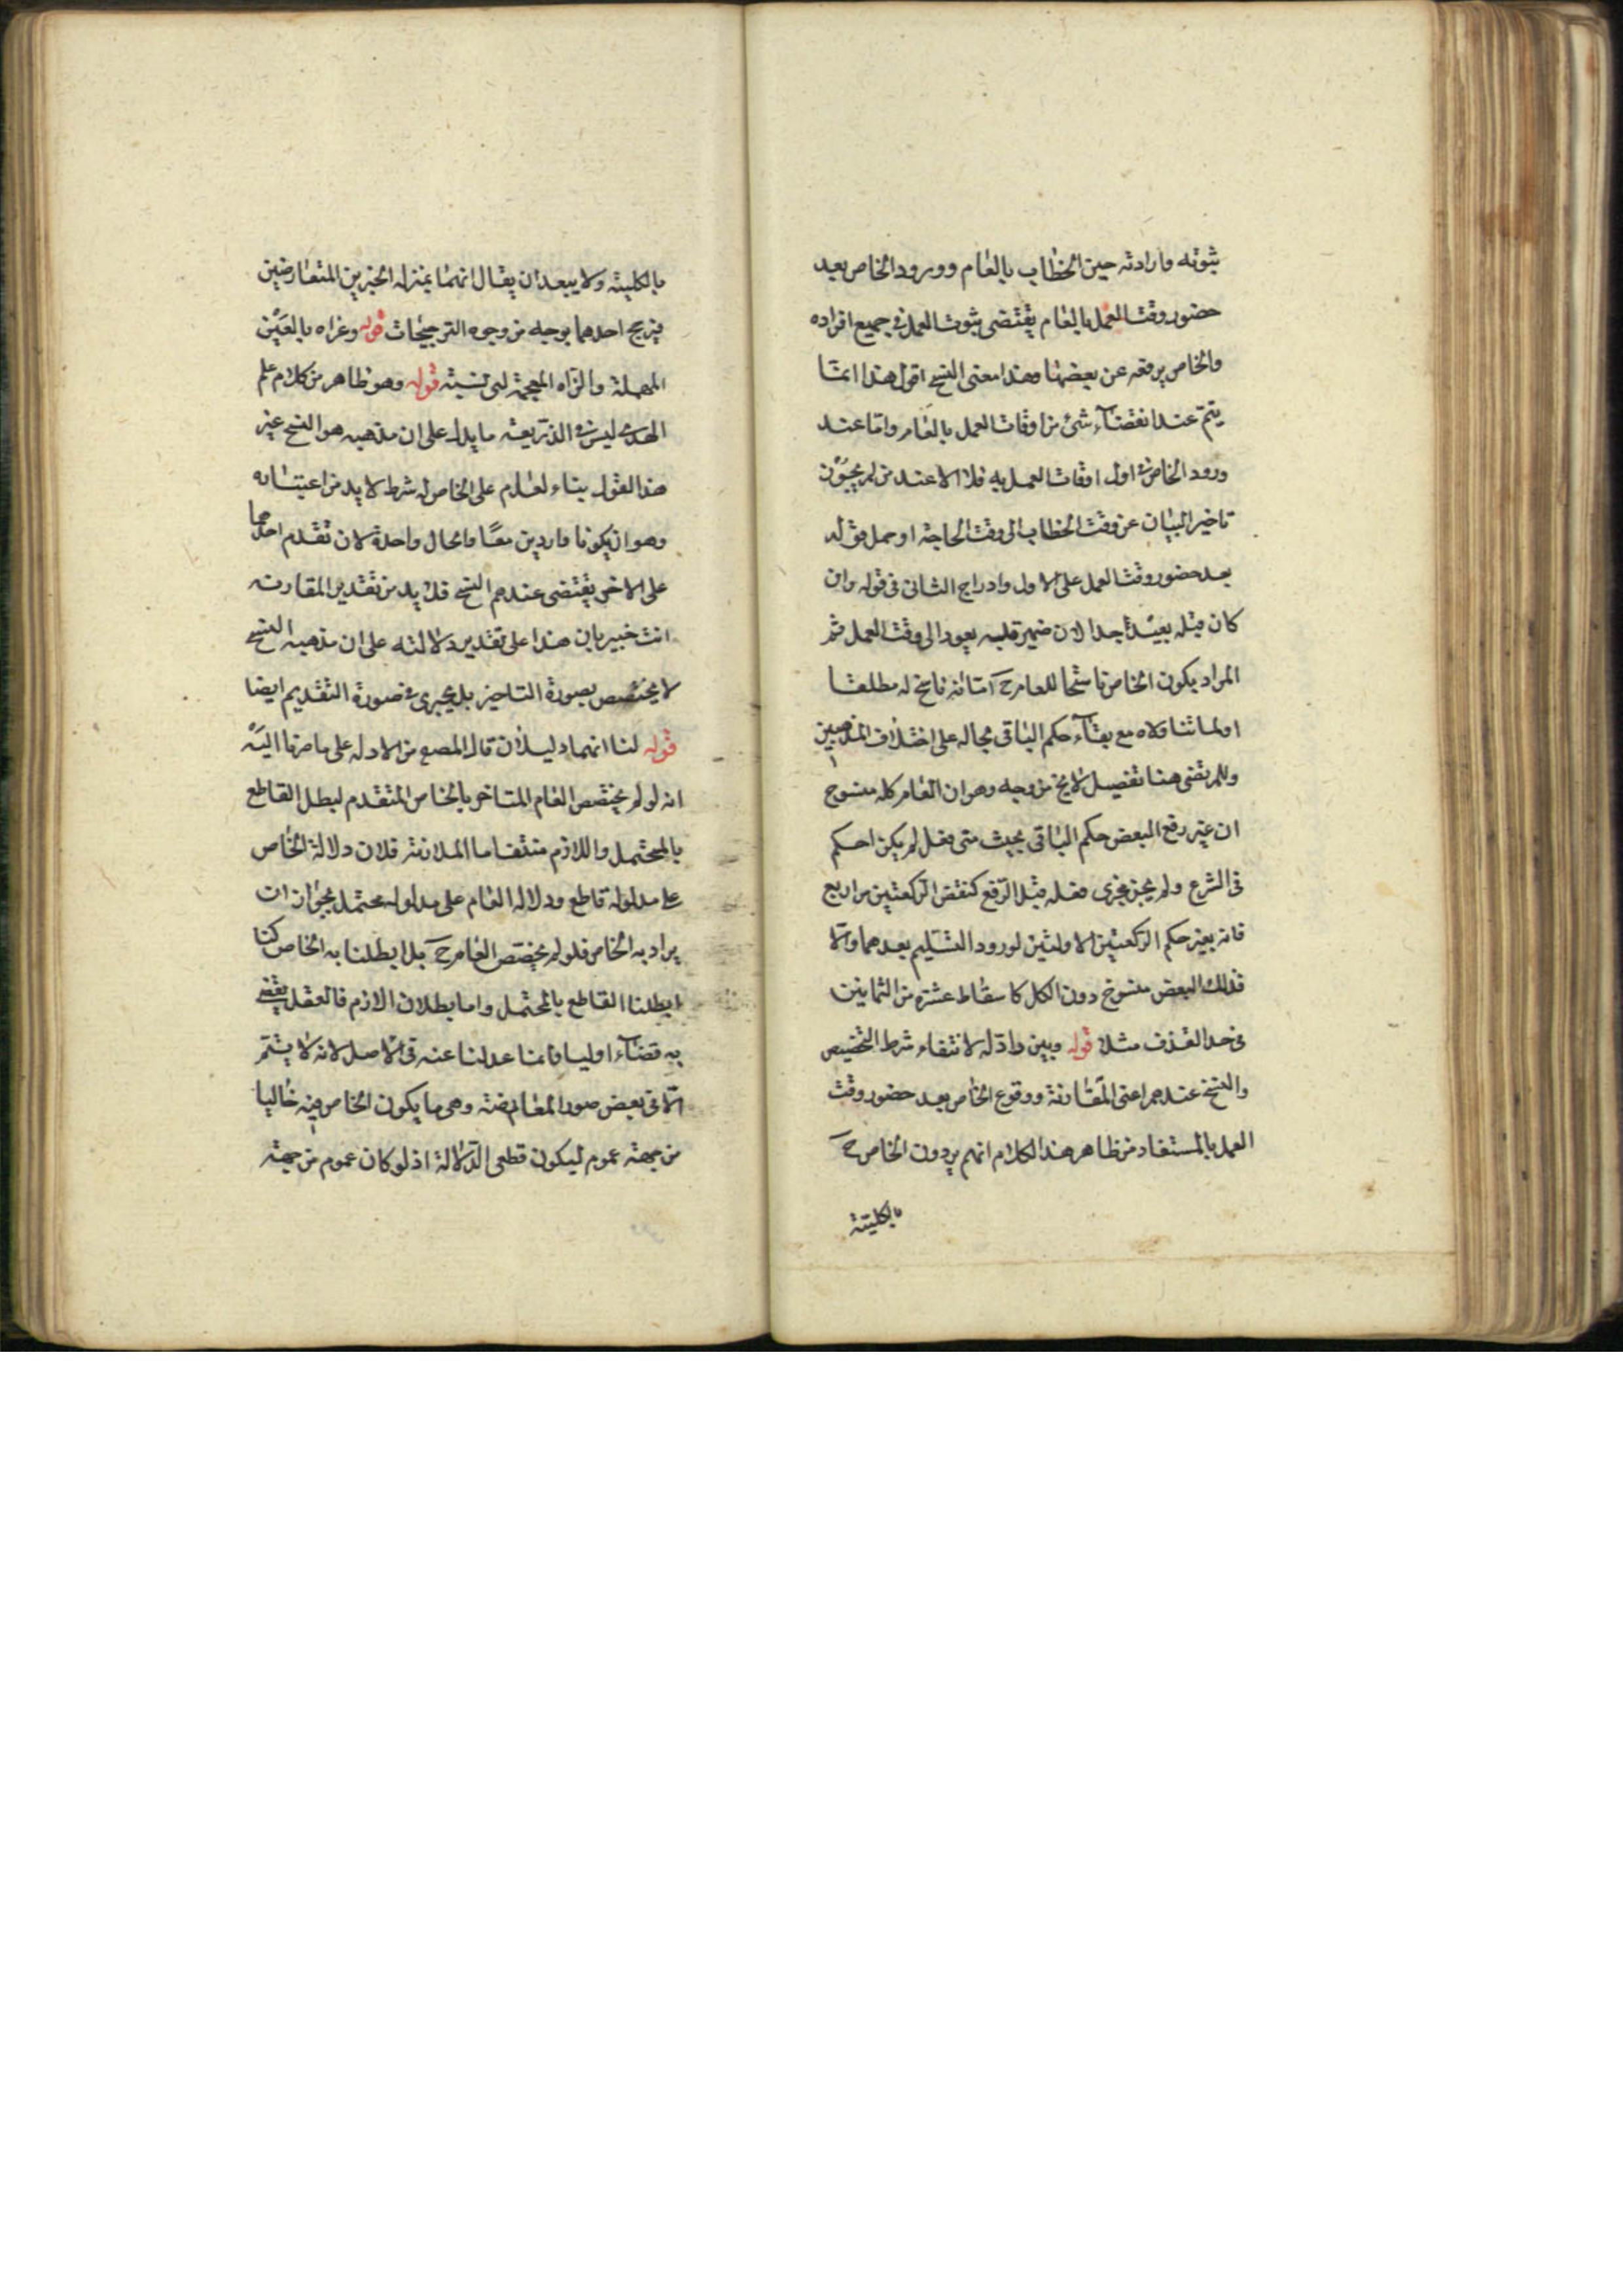 ثبوته وارادته حين الخطاب بالعام وورود الخاص بعد
حضور وقت العمل بالعام يقتضى ثبوت العمل فى جميع افراده
والخاص يرفعه عن بعضها وهذا معنى النسخ اقول هذا انما
يتم عند انقضاء شئ من اوقات العمل بالعام واما عند
ورود الخاص فى اول اوقات العمل به فلا الا عند من لم يجوز
تاخير البيان عن وقت الخطاب الى وقت الحاجة او حمل قوله
بعد حضور وقت العمل على الاول وادراج الثانى فى قوله وان
كان قبله بعيد جدا لان ضمير قبله يعود الى وقت العمل ثم
المراد بكون الخاص ناسخا للعام ح اما انه ناسخ له مطلقا
او لما تناولاه مع بقاء حكم الباقى بحاله على اختلاف المذهبين
وللمرتضى هنا تفصيل لا يخ من وجه وهو ان العام كله منسوخ
ان غير رفع البعض حكم الباقى بحيث متى فعل لم يكن له حكم
فى الشرع ولم يجر مجرى فعله قبل الرفع كنقض الركعتين من اربع
فانه يغير حكم الركعتين الاولتين لورود التسليم بعدهما والا
فذلك البعض منسوخ دون الكل كاسقاط عشرة من الثمانين
فى حد القذف مثلا قوله وبين راد له لانتفاء شرط التخصيص
والنسخ عندهم اعنى المقارنة ووقوع الخاص بعد حضور وقت
العمل بالمستفاد من ظاهر هذا الكلام انهم يردون الخاص ح
بالكلية
بالكلية ولا يبعد ان يقال انهما بمنزلة الخبرين المتعارضين
يترجح احدهما بوجه من وجوه الترجيحات قوله وعزاه بالعين
المهملة والزاء المعجمة اى نسبته قوله وهو ظاهر من كلام علم
الهدى ليس فى الذريعة ما يدل على ان مذهبه هو النسخ غير
هذا القول بناء العام على الخاص له شرط لا بد من اعتباره
وهو ان يكونا واردين معا والحال واحدة لان تقدم احدهما
على الاخر يقتضى عندهم النسخ فلا بد من تقدير المقارنة
انت خبير بان هذا على تقدير دلالته على ان مذهبه النسخ
لا يختص بصورة التاخير بل يجرى فى صورة التقديم ايضا
قوله لنا انهما دليلان قال المصنع من الادلة على ما صرنا اليه
انه لو لم يخصص العام المتاخر بالخاص المتقدم لبطل القاطع
بالمحتمل واللازم منتف اما الملازمة فلان دلالة الخاص
على مدلوله قاطع ودلالة العام على مدلوله محتمل لجواز ان
يراد به الخاص فلو لم يخصص العام ح بل ابطلنا به الخاص كنا
ابطلنا القاطع بالمحتمل واما بطلان اللازم فالعقل يقضى
به قضاء اوليا وانما عدلنا عنه فى الاصل لانه لا يتم
الا فى بعض صور المعارضة وهى ما يكون الخاص فيه خاليا
من جهة عموم ليكون قطعى الدلالة اذ لو كان عموم من جهة